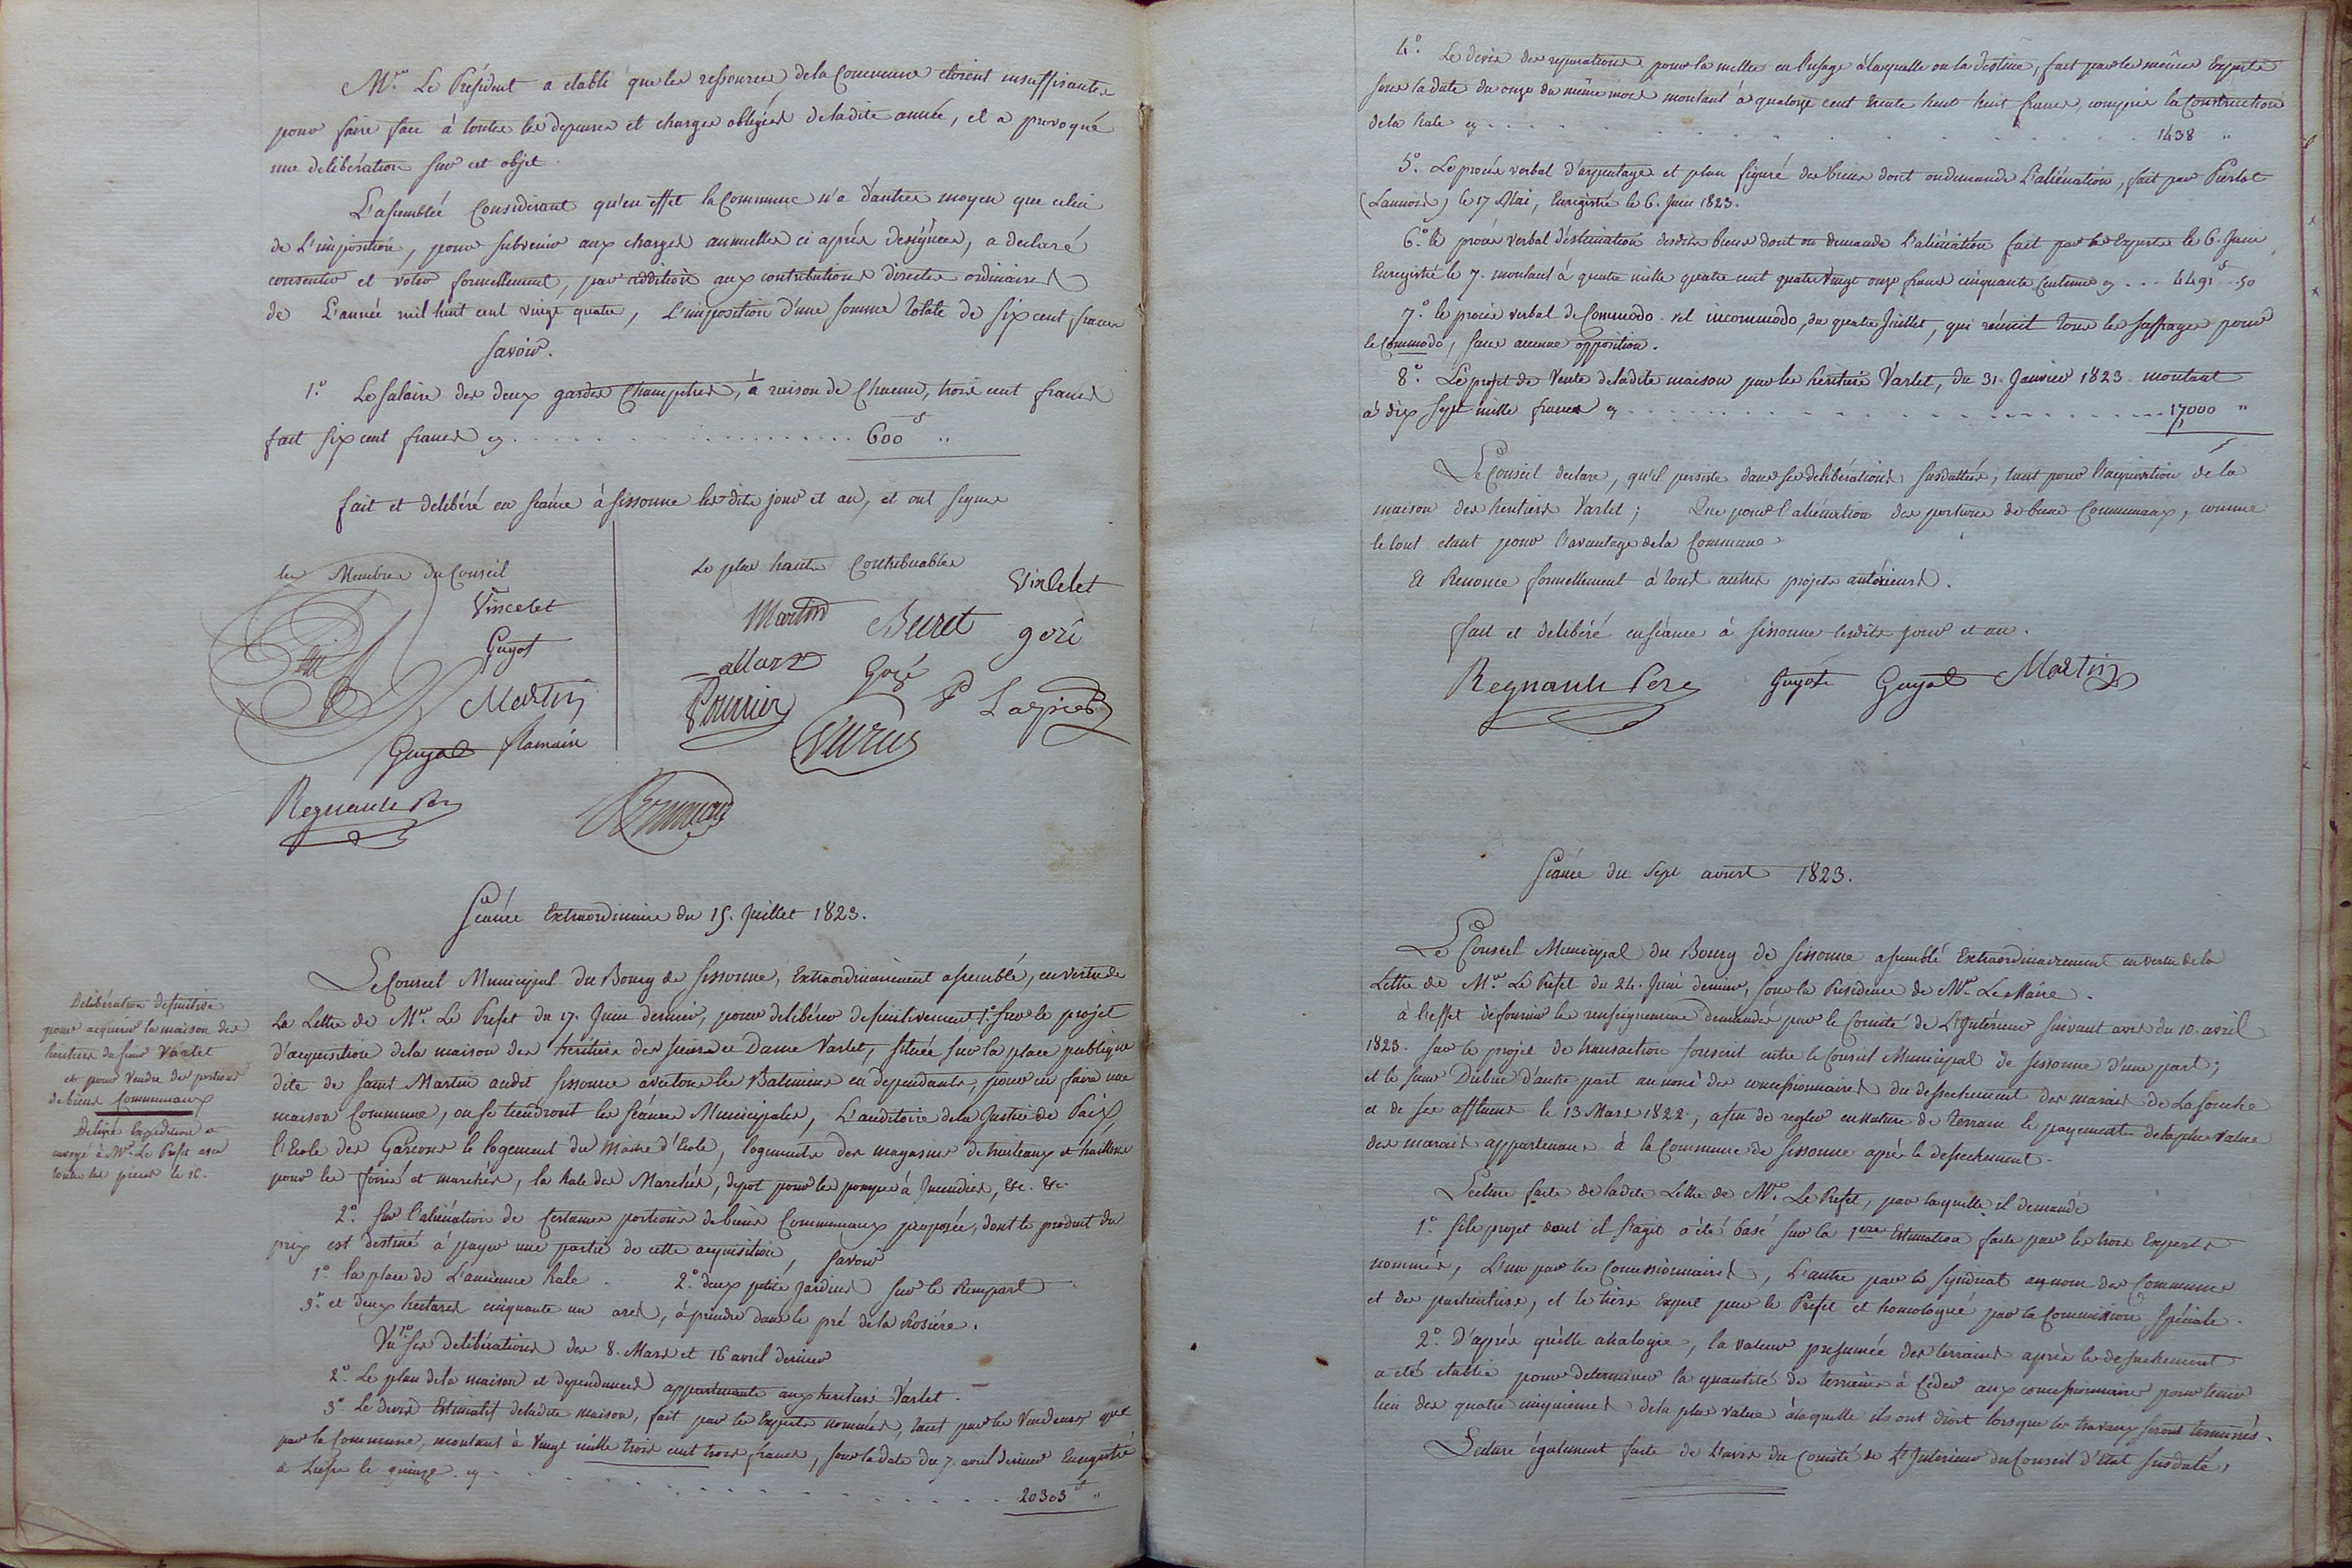 Mr. Le Président a etabli que les ressources dela Commune etoient insuffisantes
pour faire face à toutes les depenses et charges obligées deladite année, et a provoqué
une deliberation sur cet objet
L'assemblée Considérant qu'en effet la Commune n'a d'autres moyen que celui
de L'imposition, pour subvenir aux charges annuelles ci après designées, a declaré
consentir et voter formellement, par addition aux contributions directes ordinaires
de L'année mil huit cent vingt quatre, L'imposition d'une somme totale de six cent francs
Savoir.
1.° Le salaire des deux gardes Champêtres, à raison de Chacun, trois cent francs
fait six cent francs cy . . . . . . . . . . 600 f "
fait et delibéré en séance à Sissonne lesdits jour et an, et ont signés
les Membres du Conseil
Vincelet
Guyot
Martin
Guyot
Regnault Pere
Les plus hauts Contribuables
Martin
Buret
Allart
Fourrier
Délibération definitive
pour acquerir la maison des
heritiers du sieur Varlet
et pour vendre des portions
debiens Communaux
Délivré Expedition et
envoyé à Mr. Le Prefet avec
toutes les pieces le 16.
Séance Extraordinaire du 15. Juillet 1823.
Le Conseil Municipal du Bourg de Sissonne, Extraordinairement assemblé, en vertu de
la Lettre de Mr. Le Prefet du 17. Juin dernier, pour delibérer definitivement 1.° sur le projet
d'acquisition dela maison des heritiers des sieurs et Dame Varlet, située sur la place publique
dite de Saint Martin audit Sissonne avec tous les Batimens en dependants, pour en faire une
maison Commune, ou se tiendront les séances Municipales, L'auditoire dela Justice de Paix,
l'Ecole des Garcons le logement du Maitre d'Ecole, logements des magasins
pour les foires et marchés, la hale des Marchés, depot pour les pompes à Incendies, &c. &c.
2.° Sur l'aliénation de certaines portions debiens Communaux proposée, dont le produit du
prix est destiné à payer une partie de cette acquisition, Savoir
1.° la place de L'ancienne hale . 2.° deux petits jardins sur le Rempart
3.° et deux hectares cinquante un ares, à prendre dans le pré dela Rosiére.
Vu 1.° ses deliberations des 8. Mars et 16 avril dernier
2.° Le plan dela maison et dependances appartenante aux heritiers Varlet .
3.° Le devis Estimatif deladite maison, fait par les Experts nommés, tant par les Vendeurs que
par la Commune, montant à Vingt mille trois cent trois francs, sous la date du 7. avril dernier Enregistré
a Liesse le quinze. cy . . . . . . . . . . 20303 f "
4.° Le devis des reparations pour la mettre en l'usage à laquelle on la destine, fait par les mêmes Experts
sous la date du onze du même mois montant à quatorze cent trente huit francs, compris la Construction
dela hale cy . . . . . . . . . . 1438 "
5.° Le procès verbal d'arpentage et plan figuré des biens dont on demande L'aliénation, fait par Pierlot
(Launois) le 17 Mai, Enregistré le 6. Juin 1823.
6.° le procès verbal d'éstimation desdits biens dont on demande l'aliénation fait par les Experts le 6. Juin
Enregistré le 7. montant à quatre mille quatre cent quatre vingt onze francs cinquante Centimes cy . . . 4491 f 50
7.° le procès verbal de Commodo vel incommodo, du quatre Juillet, qui réunit tous les suffrages pour
le Commodo, sans aucune opposition.
8.° Le projet de Vente deladite maison par les heritiers Varlet, du 31. Janvier 1823. montant
à dix sept mille francs cy . . . . . . . . . . 17,000 "
Le Conseil declare, qu'il persiste dans ses delibérations susdattées, tant pour l'acquisition de la
maison des heritiers Varlet; Que pour l'aliénation des portions de biens Communaux, comme
le tout etant pour l'avantage dela Commune
Et Renonce formellement à tous autres projets antérieurs.
fait et delibéré en séance à Sissonne lesdits jour et an.
Regnault Pere Guyot Guyot Martin
Séance du Sept aoust 1823.
Le Conseil Municipal du Bourg de Sissonne assemblé Extraordinairement en vertu de la
Lettre de Mr. Le Prefet du 24. Juin dernier, sous la Présidence de Mr. Le Maire.
à l'effet de fournir les renseignemens demandés par le Comité de L'Intérieur suivant avis du 10. avril
1823. sur le projet de transaction souscrit entre le Conseil Municipal de Sissonne d'une part;
et le sieur Dubuc d'autre part au nom des concessionnaires du dessechement des marais de La Souche
et de ses affluens le 13 Mars 1822, afin de regler en Nature de terrain le payement dela plus value
des marais appartenans à la Commune de Sissonne après le dessechement.
Lecture faite de ladite Lettre de Mr. Le Prefet, par laquelle il demande
1.° si le projet dont il s'agit a été basé sur la 1ere Estimation faite par les trois Experts
nommés, L'un par les Concessionnaires, L'autre par le Syndicat au nom des Communes
et des particuliers, et le tiers Expert par le Prefet et homologué par la Commission Spéciale.
2.° D'après quelle analogie, la valeur presumée des terrains après le dessechement
a été etablie pour determiner la quantité de terrains à Céder aux concessionnaires pour tenir
lieu des quatre cinquiemes dela plus value à laquelle ils ont droit lorsque les travaux seront terminés.
Lecture également faite de L'avis du Comité de L'Intérieur du Conseil d'Etat susdaté,